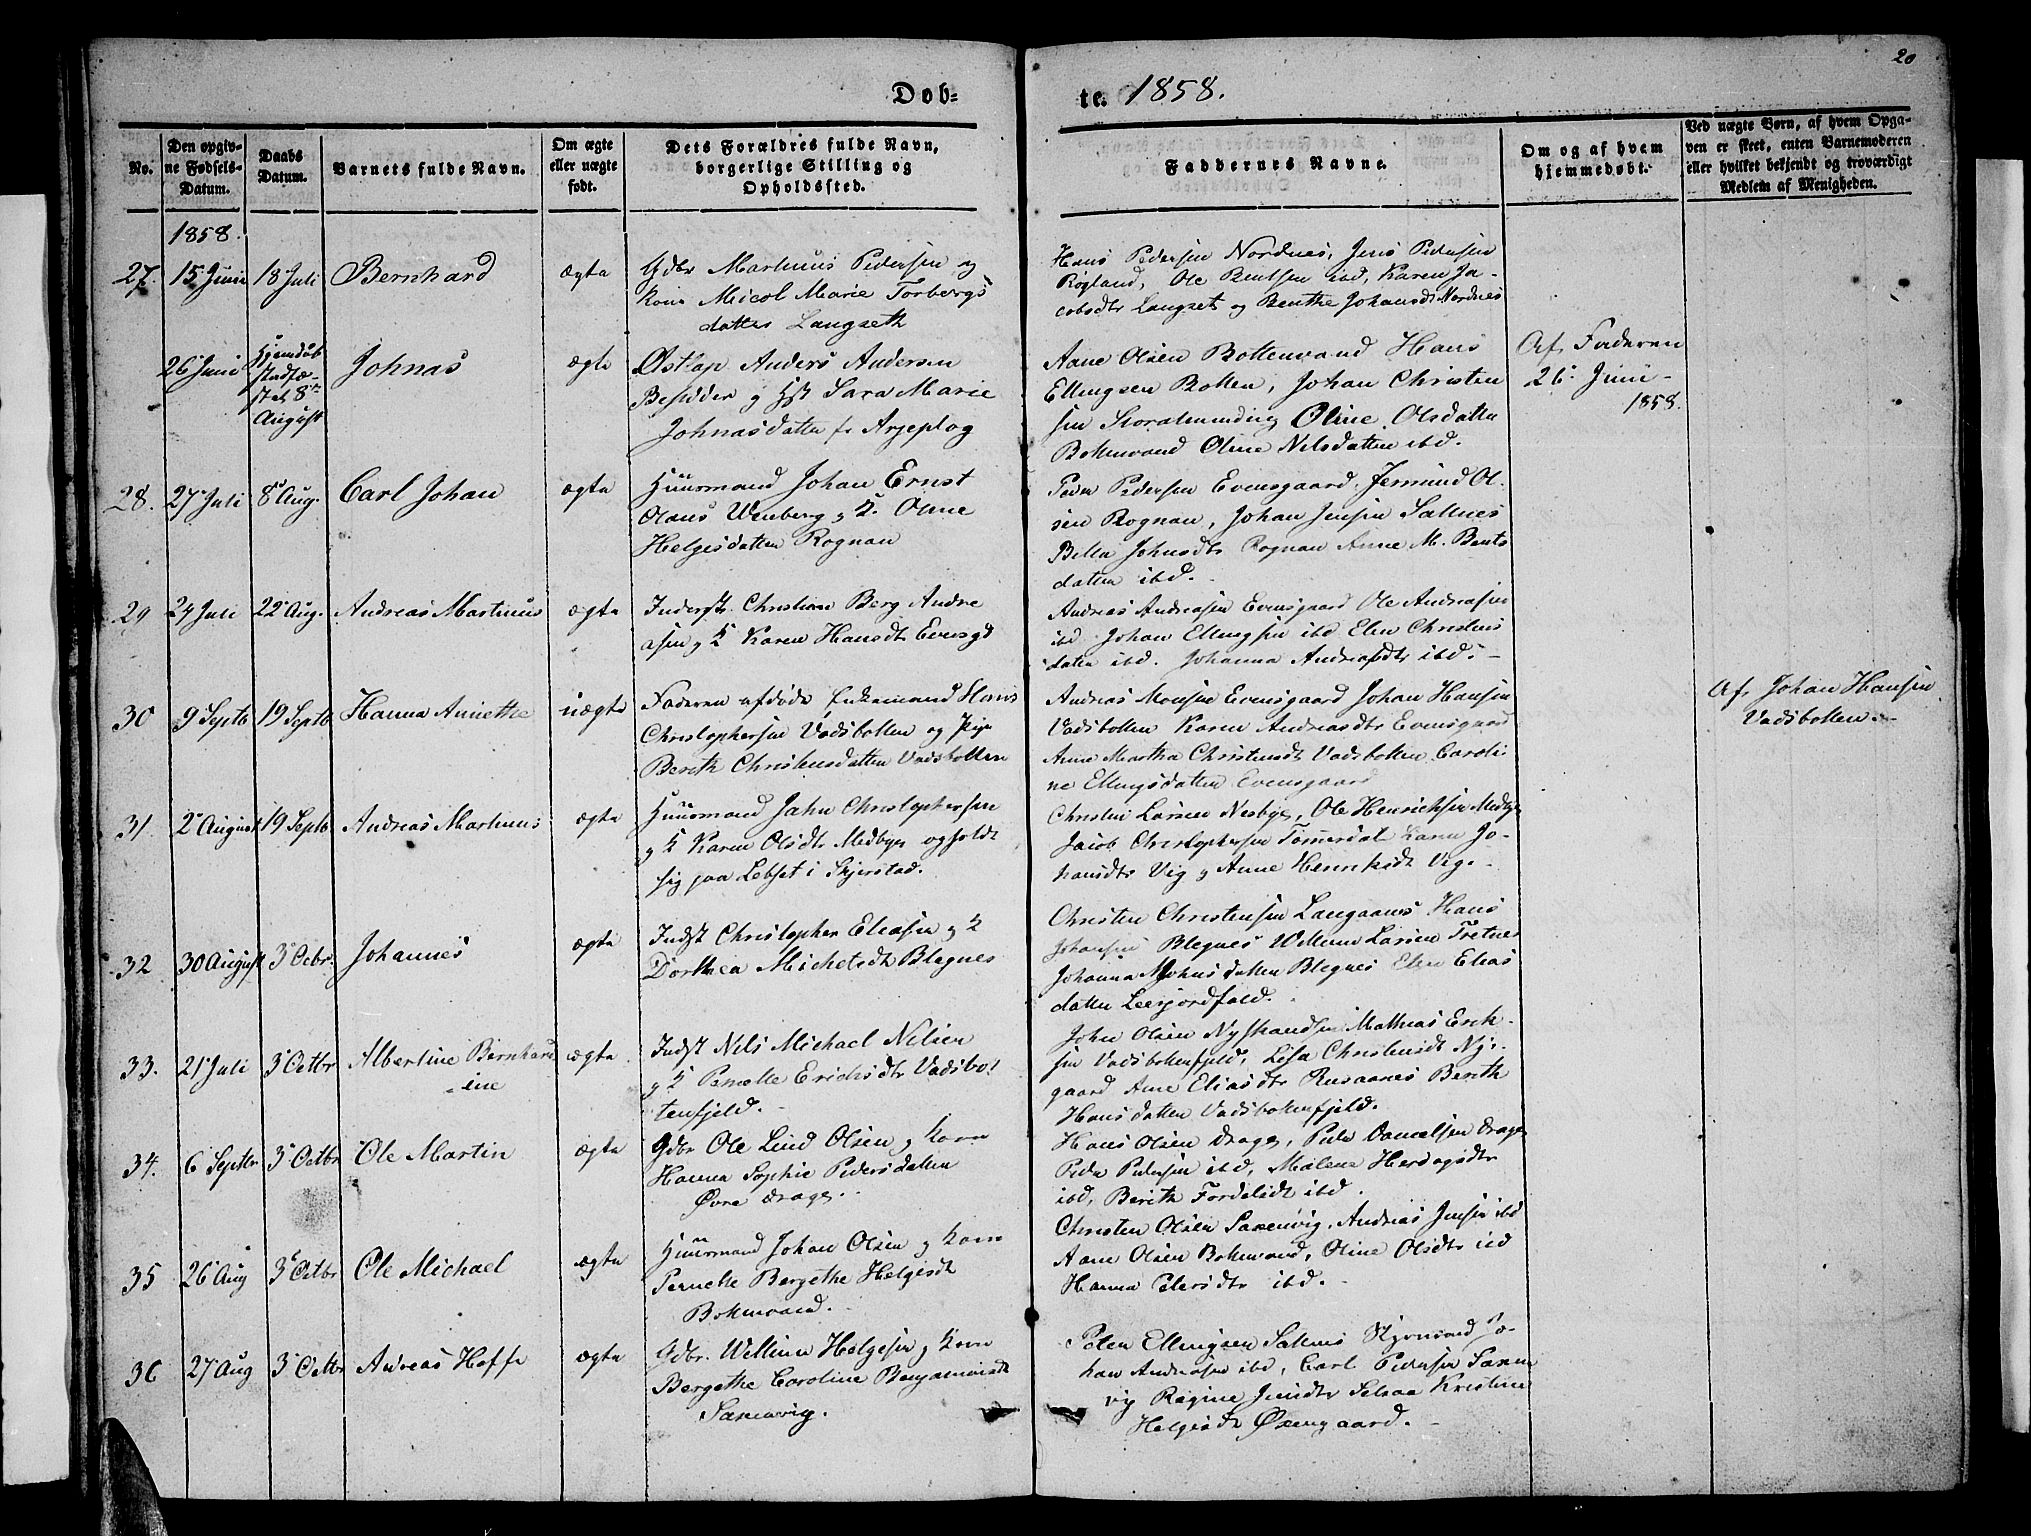 20
Døb-
te. 1858.
No.
Den opgiv-
ne Fødsels-
Datum.
Daabs
Datum.
Barnets fulde Navn.
Om ægte
eller uægte
født.
Dets Forældres fulde Navn,
borgerlige Stilling og
Opholdssted.
Faddernes Navne.
Om og af hvem
hjemmedøbt.
Ved uægte Børn, af hvem Opga-
ven er skeet, enten Barnemoderen
eller hvilket bekjendt og troværdigt
Medlem af Menigheden.
1858.
27. 15 Juni 18 Juli Bernhard ægte
Gdbr Martinus Pedersen og
Kone Micol Marie Torbergs
datter Langseth
Hans Pedersen Nordnes, Jens Pedersen
Røgland, Ole Bentsen ibd, Karen Ja-
cobsdtr Langset og Benthe Johansdt Nordnes
26 Juni Hjemdøb
stadfæ-
stet 8de
August
Johnas ægte
Østlap Anders Andersen
Besidder og Hst Sara Marie
Johnasdatter fr Arjeplog
Aane Olsen Bottenvand Hans
Ellingsen Botten, Johan Christen
sen Storalmending Oline Olsdatter
Bottenvand Oline Nilsdatter ibd.
Af Faderen
26 Juni
1858.
28. 27 Juli 8 Aug. Carl Johan ægte
Huusmand Johan Ernst
Olaus Wenberg og K. Oline
Helgesdatter Rognan
Peder Pedersen Evensgaard, Jermund Ol-
sen Rognan, Johan Jensen Saltnes
Bella Johnsdtr Rognan Anne M. Bents
datter ibd.
29 24 Juli 22 Aug. Andreas Martinus ægte
Inderst Christian Berg Andre
asen og K Karen Hansdtr Evensgd
Andreas Andreasen Evensgaard Ole Andreasen
ibd Johan Ellingsen ibd Elen Christens
datter ibd. Johanna Andreasdtr ibd.
30 9 Septb 19 Septb Hanna Annethe uægte
Faderen afdøde Enkemand Hans
Christophersen Vadsbotten og Pige
Berith Christensdatter Vadsbotten
Andreas Monsen Evensgaard Johan Hansen
Vadsbotten Karen Andreasdtr Evensgaard
Anne Martha Christensdt Vadsbotten Caroli
ne Ellingsdatter Evensgaard
Af Johan Hansen
Vadsbotten.
31. 2 August 19 Septb Andreas Martinus ægte
Huusmand Jahn Christophersen
og K Karen Olsdtr Medbye opholdt
sig paa Lebset i Skjerstad.
Christen Larsen Nesbye, Ole Henrichsen Medbye
Jacob Christophersen Tømerdal Karen Jo-
hansdtr Vig og Anne Henriksdt Vig.
32 30 August 3 Octbr. Johannes ægte
Indst Christopher Eliasen og K
Dorthea Michelsdt Blegnes
Christen Christensen Langaanes Hans
Johansen Blegnes Willum Larsen Tretnes
Johanna M Johnsdatter Blegnes Elen Elias
datter Leerjordfald.
33. 21 Juli 3 Octbr Albertine Bernhard
ine ægte
Indst Nils Michael Nilsen
og K Pernelle Erichsdtr Vadsbot
tenfjeld.
John Olsen Nystrand Mathias Erik-
sen Vadsbottenfjeld, Lisa Christensdt Ny-
gaard Ane Eliasdtr Rusaanes Berith
Hansdatter Vadsbottenfjeld.
34. 6 Septbr 3 Octbr Ole Martin ægte
Gdbr Ole Lund Olsen og Kone
Hanna Sophie Pedersdatter
Øvre Drage.
Hans Olsen Drage, Peder Danielsen Drage
Peder Pedersen ibd, Malene Hersdtr
ibd, Berith ibd.
35 26 Aug 3 Octbr Ole Michael ægte
Huusmand Johan Olsen og Kone
Pernelle Bergethe Helgesdt
Bottenvand.
Christen Olsen Saxenvig, Andreas Jensen ibd
Aane Olsen Bottenvand, Oline Olsdtr ibd
Hanna Petersdtr ibd.
36 27 Aug 3 Octbr Andreas Hoffe ægte
Gdbr. Willum Helgesen og Kone
Bergethe Caroline Benjaminsdt
Saxenvig.
Peter Ellingsen Saltnes Jo-
han Andreasen ibd, Carl Pedersen Saxen
vig Regine Jensdtr Setsaa Kristine
Helgesdt Øxengaard.